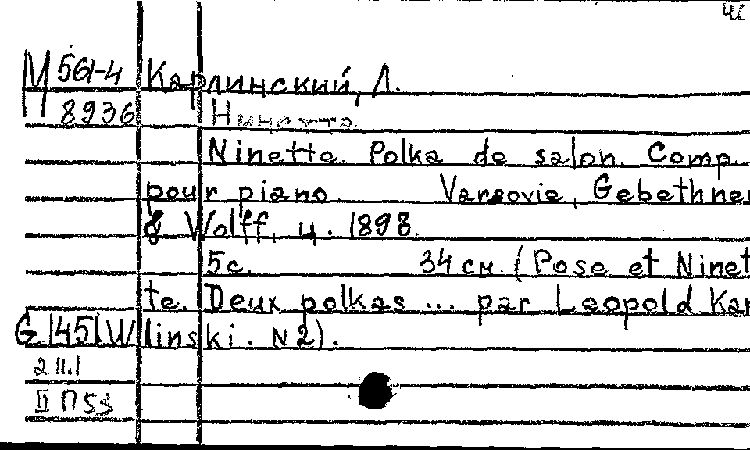 М 561-4 Карлинский, Л.
П 8936 Нинетта.
Ninette. Polka de salon. Comp.
pour piano. Varsovie, Gebethner
& Wolff, ц. 1898.
5с. 34 см. (Pose et Ninet
te. Deux polkas ... par Leopold Kar
G 145/W linski. N2).
2 11.1
II П 53